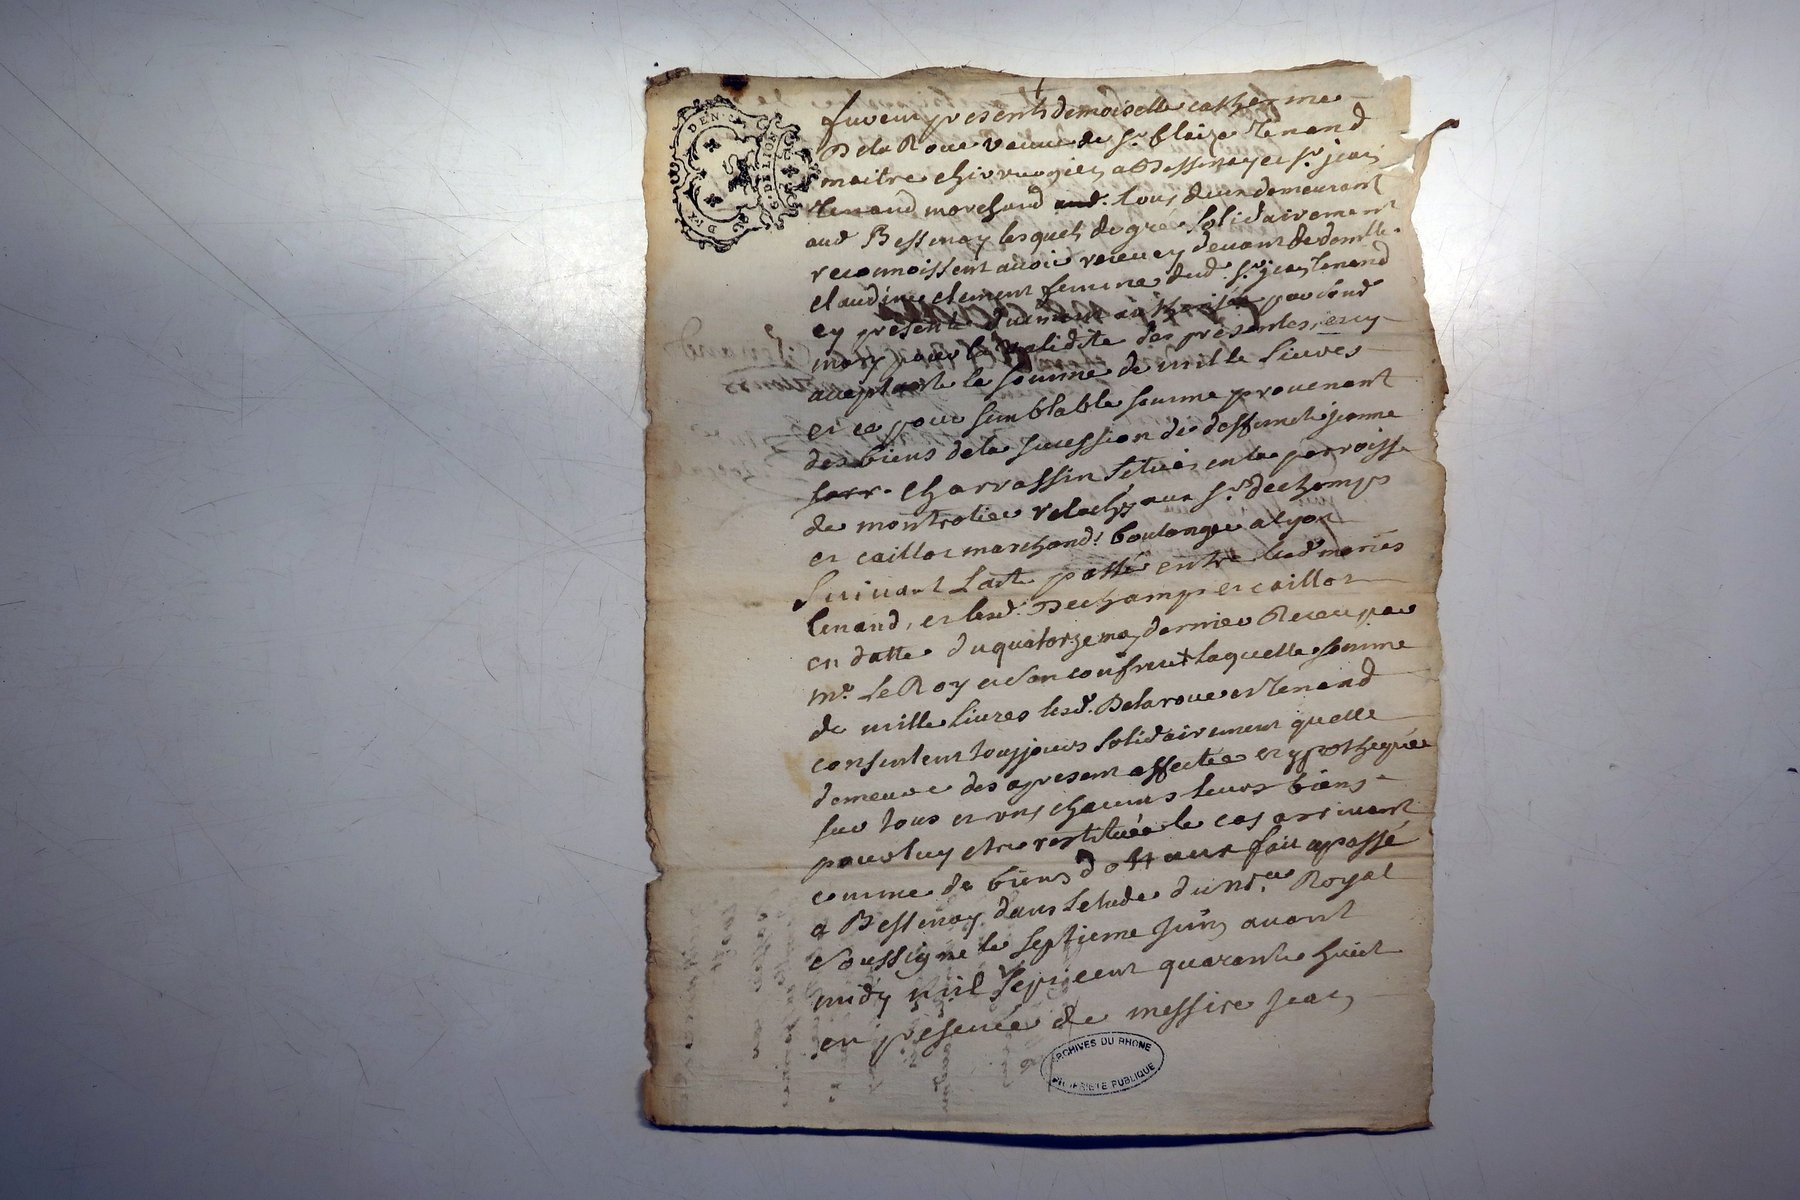 furent presents demoiselle catherine
Dela Roue veuve de Sr. blaize Tenand
maitre chirurgien a Bessenay et Sr. jean
Tenand marchand aud. tous deux demeurant
aud Bessenay lesquels de gré solidairement
reconnoissent avoir receu cy devant de demlle.
claudine clement femme dud. Sr. jean Tenand
cy presente duement authorisée par sond
mary pour la validité des presentes, et cy
acceptante la somme de mille livres
et ce pour semblable somme provenant
des biens dela sucession de deffuncte jeanne
charrassin situés en la parroisse
de montrotier relachés aux Srs. dechamps
et caillot marchands boulanger a lyon
suivant Lacte passé entre lesd mariés
tenand, et lesd. Dechamps et caillot
en datte du quatorze may dernier Receu par
me. Le Roy et son confrere laquelle somme
de mille livres lesd. Delaroue et Tenand
consentent toujjours solidairement quelle
demeure des apresent affectée et ypothequée
sur tous et uns chacuns leurs biens
pour luy etre restituée le cas arrivant
comme de biens dottaux fait a passé
a Bessenay dans Letude du nore. Royal
soussigné le septieme juin avant
midy mil sept cent quarante huit
en presence de messire jean
DEN.
G. DE LION
ARCHIVES DU RHONE
PROPRIETE PUBLIQUE